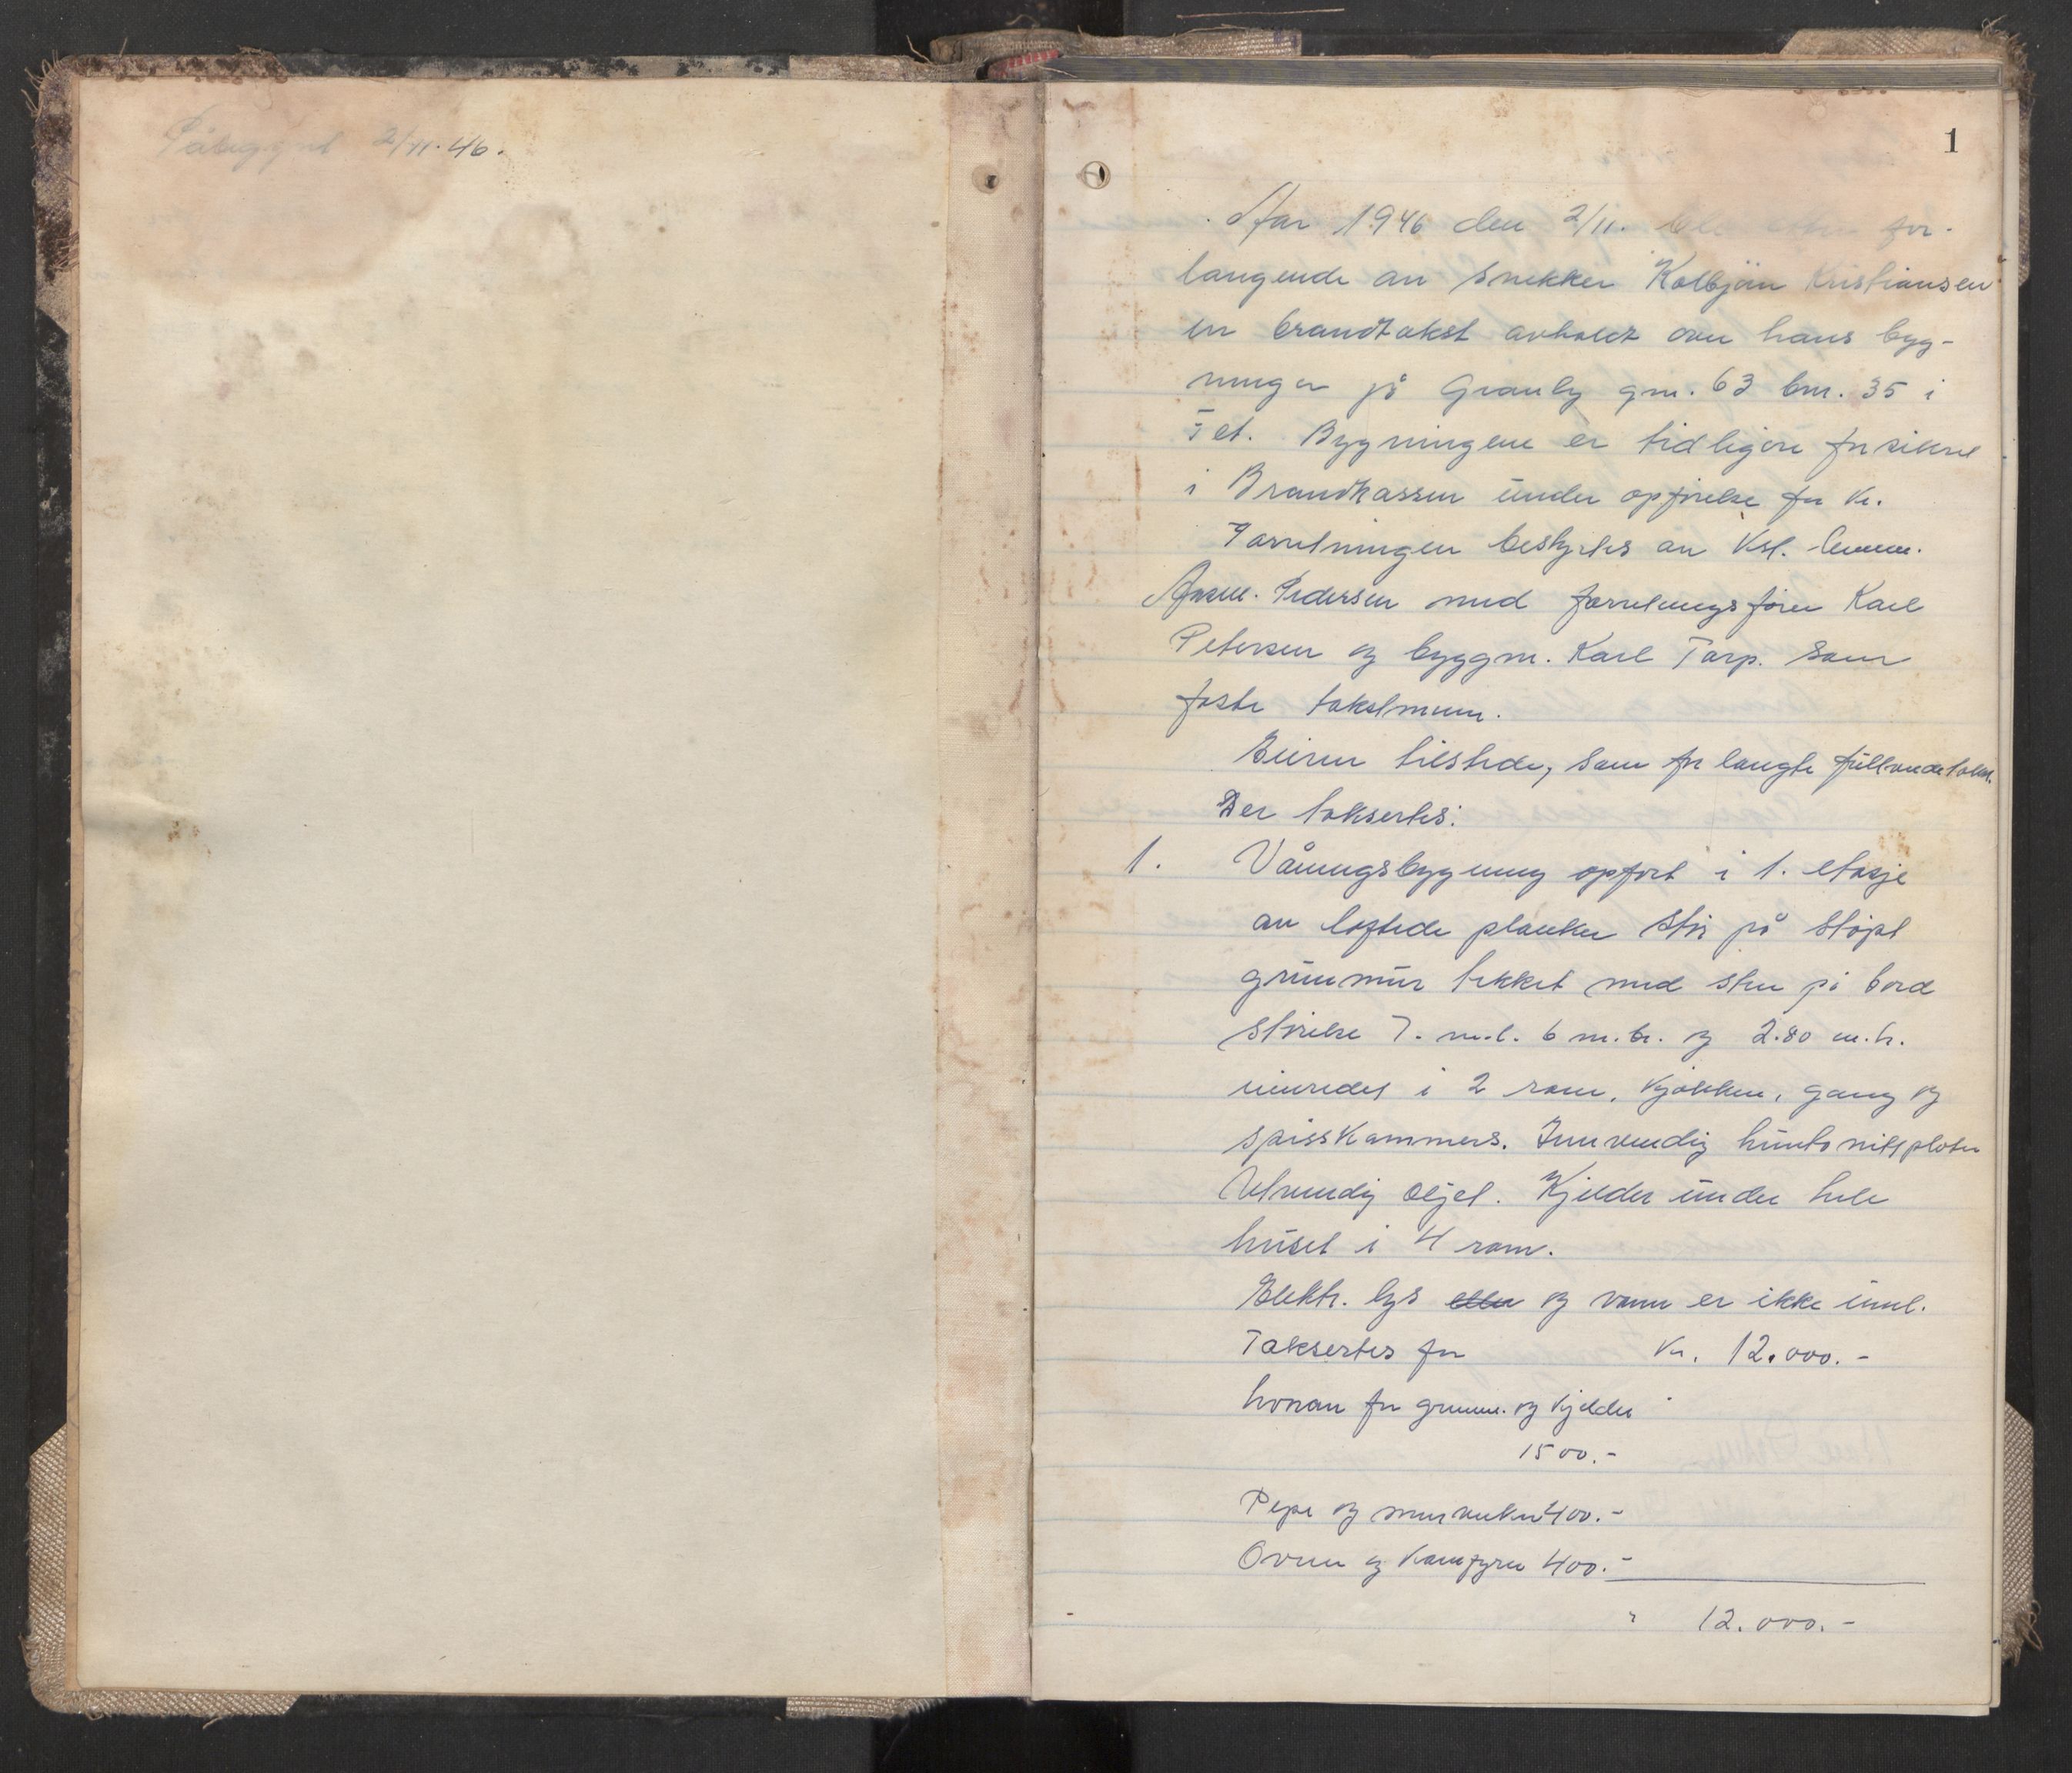 Påbegynt 2/11.46.
1
Aar 1946 den 2/11. ble etter for-
langende av snekker Kolbjörn Kristiansen
en brandtakst avholdt over hans byg-
ninger på Granly gnr. 63 bnr. 35 i
Bygningene er tidligere forsikret
i Brandkassen under opförelse for kr.
Forretningen bestyrtes av Kst. lensm.
Pedersen med forretningsförer Karl
Petersen og byggm. Karl Tarp. som
faste takstmenn.
Eieren tilstede, som forlangte fullverditakst.
Der taksertes:
1. Våningsbygning opfört i 1. etasje
av loftede planker står på stöpt
grunmur tekket med sten på bord
störelse 7. m.l. 6 m.br. og 2.80 m.h.
innredet i 2 rom, kjökken, gang og
spisskammers. Innvendig huntonittplater
Utvendig oljet. Kjelder under hele
huset i 4 rom.
Elektr. lys eller og vann er ikke innl.
Taksertes for kr. 12.000.-
hvorav for grunnm. og kjelder
1500.-
Pipe og murverker 400.-
Ovner og kamfyrer 400.-
" 12.000.-